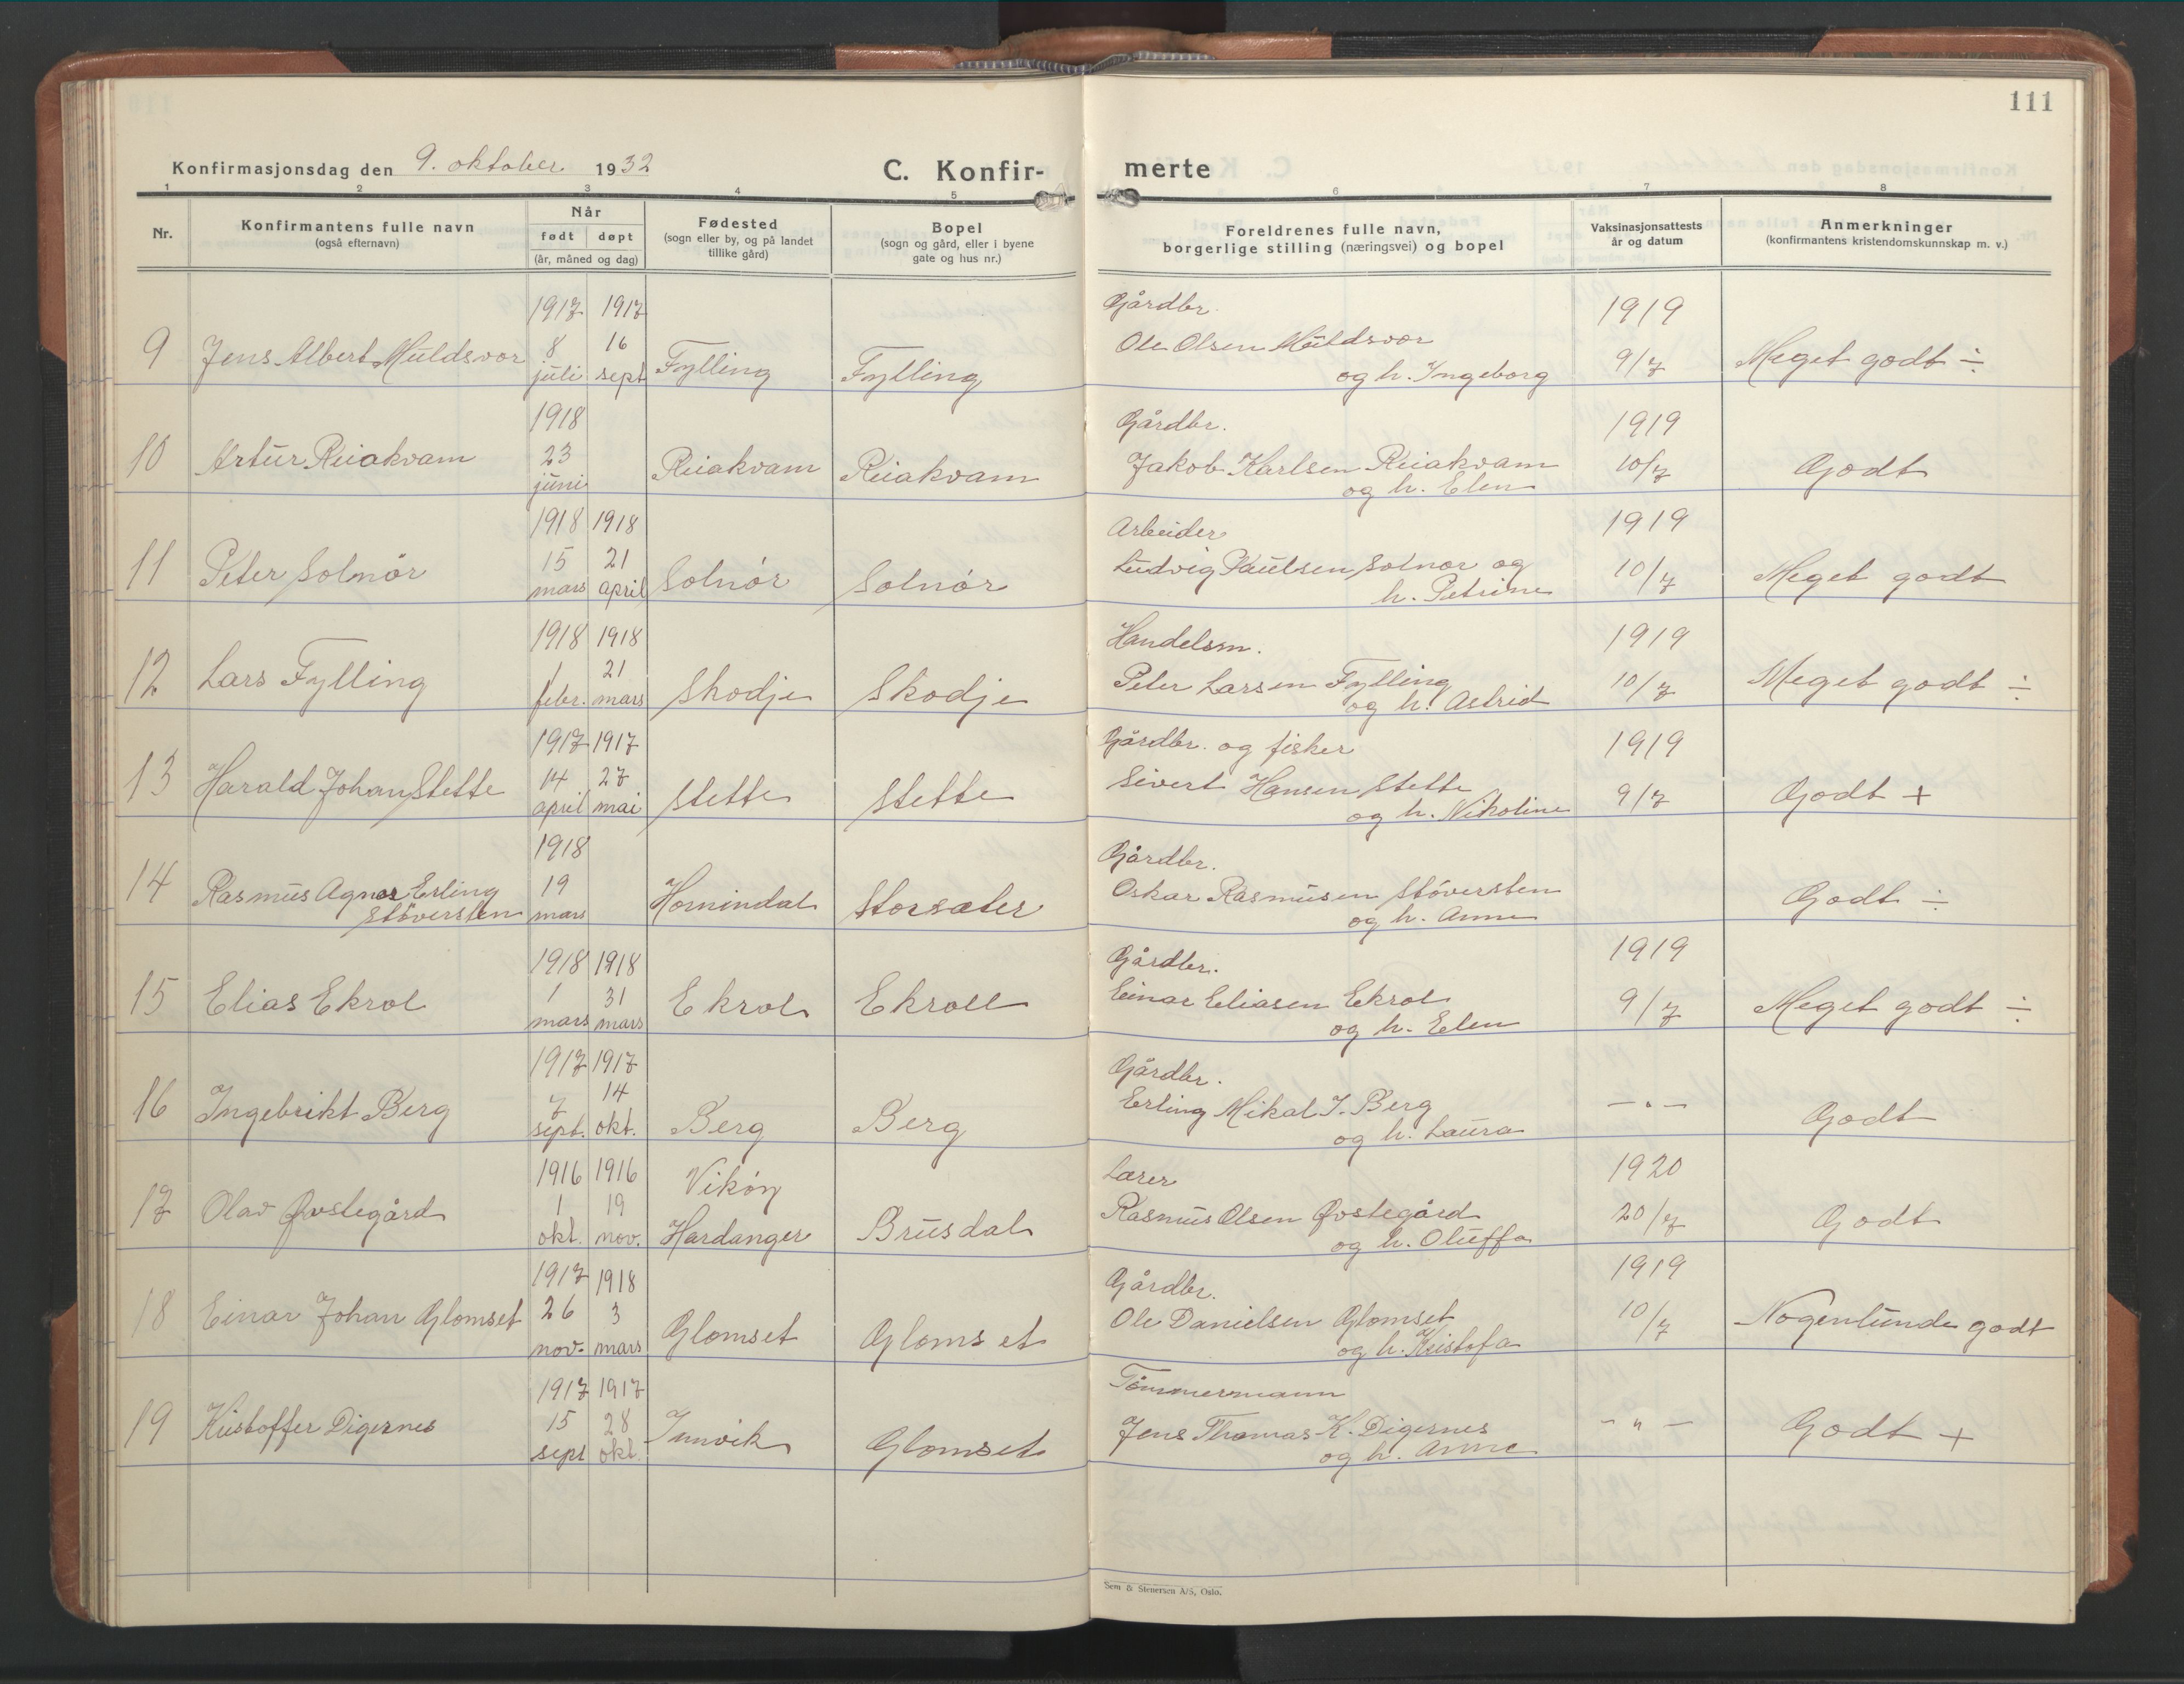 111
Konfirmasjonsdag den 9. oktober 1932
C. Konfir-
merte
1 2 3 4 5 6 7 8
Nr.
Konfirmantens fulle navn
(også efternavn)
Når
født døpt
(år, måned og dag)
Fødested
(sogn eller by, og på landet
tillike gård)
Bopel
(sogn og gård, eller i byene
gate og hus nr.)
Foreldrenes fulle navn,
borgerlige stilling (næringsvei) og bopel
Vaksinasjonsattests
år og datum
Anmerkninger
(konfirmantens kristendomskunnskap m. v.)
1917 1917 Gårdbr. 1919
9 Jens Albert Muldsvor 8 16 Fylling Fylling Ole Olsen Muldsvor 9/7 Meget godt ÷
juli sept og h. Ingeborg
1918 Gårdbr. 1919
10 Artur Reiakvam 23 Reiakvam Reiakvam Jakob Karlsen Reiakvam 10/7 Godt
juni og h. Elen
1918 1918 Arbeider 1919
11 Peter Solnör 15 21 Solnör Solnör Ludvig Paulsen Solnor og 10/7 Meget godt
mars april h. Petrine
1918 1918 Handelsm. 1919
12 Lars Fylling 1 21 Skodje Skodje Peter Larsen Fylling 10/7 Meget godt ÷
febr. mars og h. Astrid
1917 1917 Gårdbr. og fisker 1919
13 Harald Johan Stette 14 27 Stette Stette Sivert Hansen Stette 9/7 Godt +
april mai og h. Nikoline
1918 Gårdbr.
14 Rasmus Agnar Erling 19 Hornindal Storsæter Oskar Rasmusen Stöversten Godt ÷
Stöversten mars og h. Anne
1918 1918 Gårdbr. 1919
15 Elias Ekrol 1 31 Ekrol Ekroll Einar Eliasen Ekrol 9/7 Meget godt ÷
mars mars og h. Elen
1917 1917 Gårdbr.
16 Ingebrikt Berg 7 14 Berg Berg Erling Mikal I. Berg — " — Godt
sept. okt. og h. Laura
1916 1916 Vikøy Lærer 1920
17 Olav Øvstegård 1 19 Hardanger Brusdal Rasmus Olsen Øvstegård 20/7 Godt
okt. nov. og h. Oluffa
1917 1918 Gårdbr. 1919
18 Einar Johan Glomset 26 3 Glomset Glomset Ole Danielsen Glomset 10/7 Nogenlunde godt
nov. mars og h. Kristofa
1917 1917 Tömmermann
19 Kristoffer Digernes 15 28 Innvik Glomset Jens Thomas K. Digernes — " — Godt +
sept okt. og h. Anne
Sem & Stenersen A/S, Oslo.